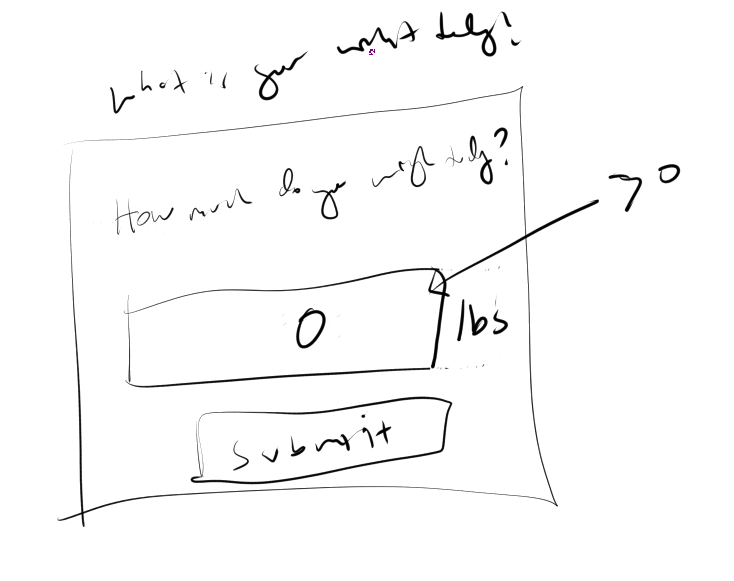 What is your weight today?
How much do you weigh today?
> 0
0
lbs
Submit